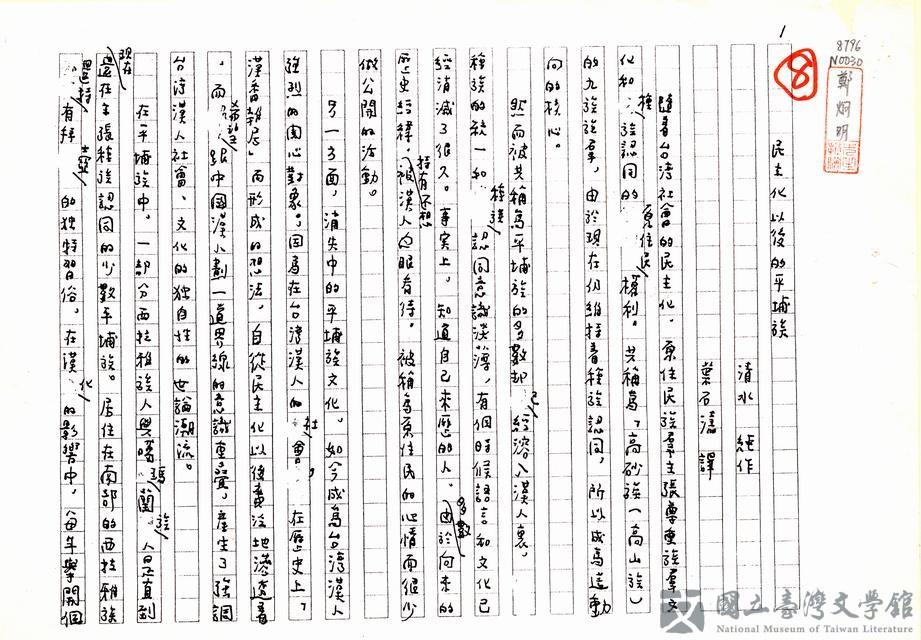 1
8796
N0030
鄭烱明
⑧
民主化以後的平埔族
清水 純作
葉石濤 譯
隨着台灣社會的民主化，原住民族羣主張尊重族羣文
化和種族認同的原住民權利。共稱為「高砂族（高山族）
的九族羣，由於現在仍維持着種族認同，所以成為運動
向的核心。
然而被共稱為平埔族的多數卻已經溶入漢人裏，
種族的統一和種族認同意識淡薄，有個時候語言和文化已
經消滅了很久。事實上，知道自己來歷的人，多數由於向來的
歷史經緯，被漢人白眼看待。持有不想被稱為原住民的心情而很少
做公開的活動。
另一方面，消失中的平埔族文化，如今成為台灣漢人
強烈的関心對象。因為在台灣漢人的社會，在歷史上，
漢番雜居」而形成的想法，自從民主化以後賣泠地滲透着
，而希望跟中國漢人劃一道界線的意識重疊，產生了強調
台灣漢人社會、文化的独自性的世論潮流。
在平埔族中，一部分西拉雅族人與噶瑪蘭族人是直到
現在還在主張種族認同的少數平埔族。居住在南部的西拉雅族
還持有拜壺的独特習俗，在漢化的影響中，每年舉開個
國立臺灣文學館
National Museum of Taiwan Literature